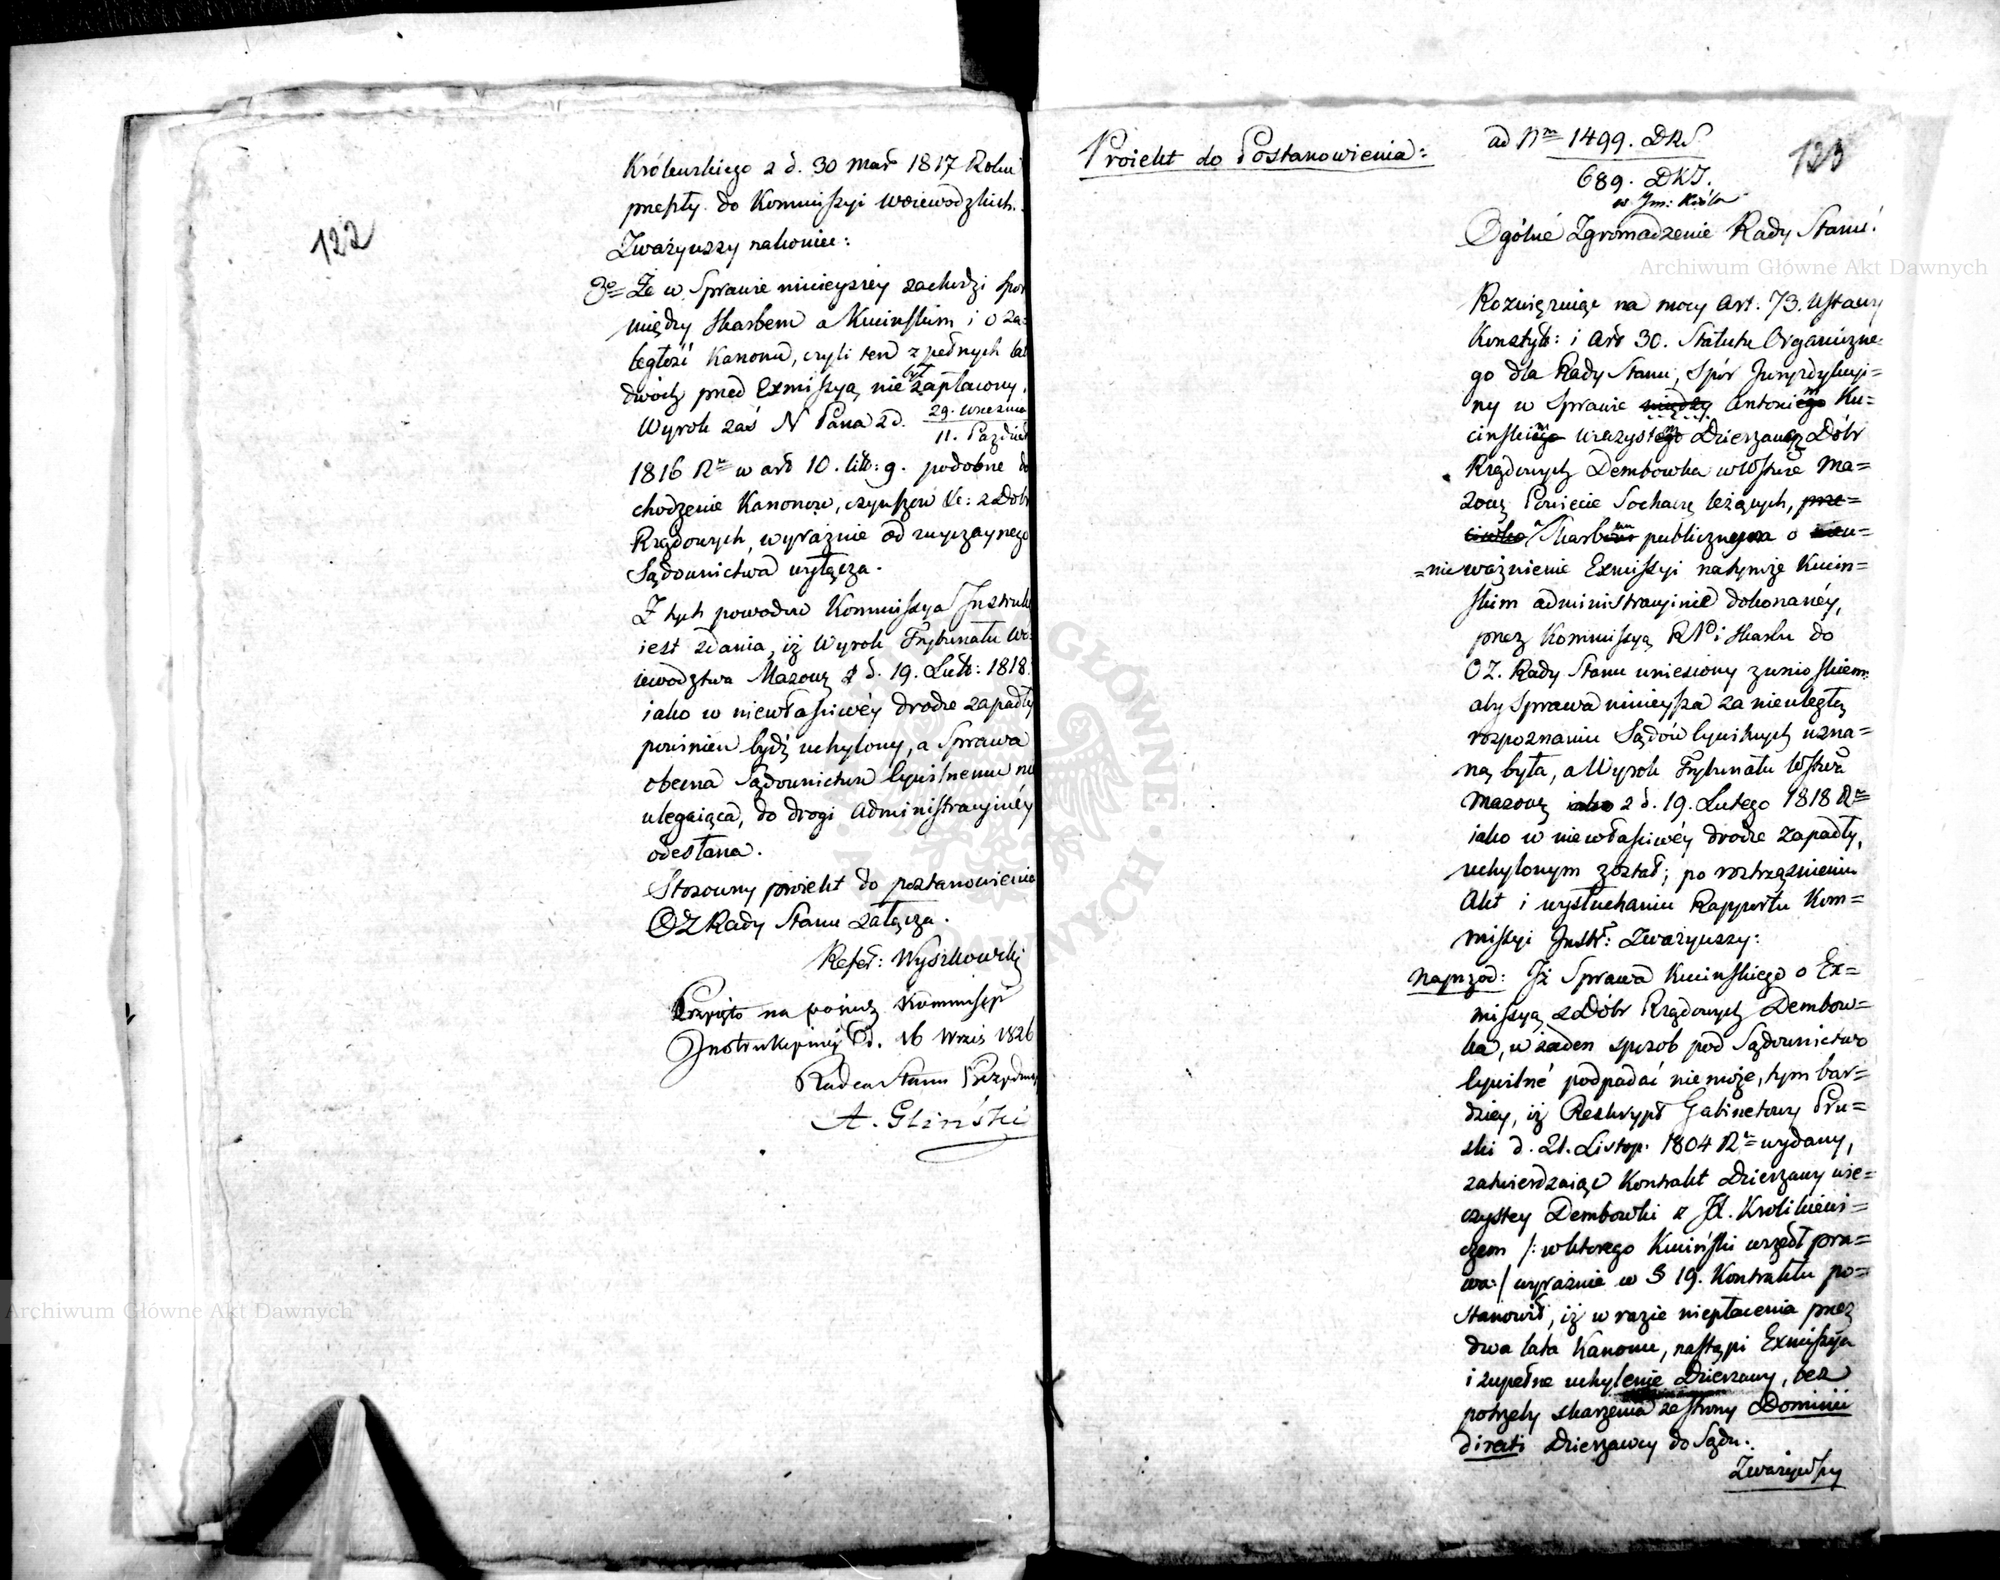 122
Królewskiego z d. 30 Mar 1817 Roku
przesły. do Kommissyi Woiewodzkich.
Zważywszy nakoniec:
3o= Że w Sprawie ninieyszey zachodzi spór
między Skarbem a Kucińskim i o za=
ległość Kanonu, czyli ten z pełnych lat
dwóch przed Exmissyą nie był zapłacony.
Wyrok zaś N Pana z d. 29. Września
11. Paździer
1816 R. w art 10. litt: g. podobne do
chodzenie Kanonow, czynszów &c: z Dobr
Rządowych, wyraźnie od zwyczaynego
Sądownictwa wyłącza.
Z tych powodów Kommissya Instruk
iest zdania, iż Wyrok Trybunału Wo=
iewodztwa Mazow z d. 19. Lut: 1818.
iako w niewłaściwéy drodze zapadły
powinien bydź uchylony, a Sprawa
obecna Sądownictwu Cywilnemu nie
ulegaiąca, do drogi administracyinéy
odesłana.
Stosowny proiekt do postanowienia
OZ Rady Stanu załącza.
Refer: Wyszkowski
Przyięto na posiedz Kommissyi
Instrukcyinéy d. 16 Wrześ 1826
Radca Stanu Prezyduiący
A. Gliński
Proiekt do Postanowienia:
ad Nm 1499. DRS
689. DKJ.
123
w Im: Króla
Ogólné Zgromadzenie Rady Stanu.
Rozwięzuiąc na mocy Art: 73. Ustawy
Konstyt: i Art 30. Statutu Organiczne=
go dla Rady Stanu, Spór Juryzdykcyi=
ny w Sprawie między Antoniego Ku=
cińskiego wieczystego Dzierzawcę Dóbr
Rządowych Dembowka w Wstwie Ma=
zow Powiecie Sochacz leżących, prze=
ciwko a Skarbem publicznym o nieu=
=nie ważnienie Exmissyi na tymże Kuciń=
skim administracyinie dokonanéy,
przez Kommissyą RP i Skarbu do
OZ. Rady Stanu wniesiony z wnioskiem
aby Sprawa ninieysza za nieuległą
rozpoznaniu Sądów Cywilnych uzna=
ną była, a Wyrok Trybunału Wstwa
Mazow iako z d. 19. Lutego 1818 R.
iako w niewłaściwéy drodze zapadły,
uchylonym został; po roztrząśnieniu
Akt i wysłuchaniu Rapportu Kom=
missyi Instr: Zważywszy:
Naprzod: Iż Sprawa Kucińskiego o Ex=
missyą z Dóbr Rządowych Dembow=
ka, w żaden sposob pod Sądownictwo
Cywilné podpadać nie może, tym bar=
dziey, iż Reskrypt Gabinetowy Pru=
ski d. 21. Listop. 1804 R. wydany,
zatwierdzaiąc Kontrakt Dzierzawy wie=
czystey Dembowki z JK. Krolikiewi=
czem /: w ktorego Kuciński wszedł pra=
wa:/ wyraźnie w § 19. Kontraktu po=
stanowił, iż w razie niepłacenia przez
dwa lata Kanonu, nastąpi Exmissya
i zupełne uchylenie Dzierzawy, bez
potrzeby skarżenia ze strony Dominii
directi Dzierzawcy do Sądu.
Zważywszy
Archiwum Główne Akt Dawnych
Archiwum Główne Akt Dawnych